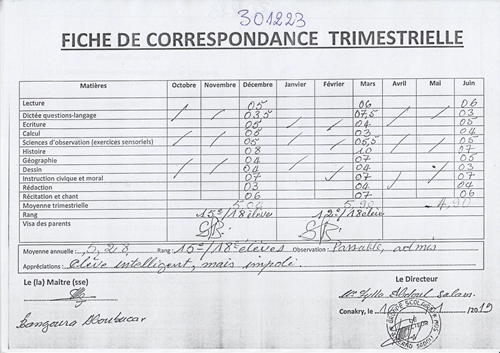 301223
FICHE DE CORRESPONDANCE TRIMESTRIELLE
Matières Octobre Novembre Décembre Janvier Février Mars Avril Mai Juin
Lecture 05 06 06
Dictée questions-langage 03,5 07,5 03
Ecriture 05 04 05
Calcul 03 04
Sciences d'observation (exercices sensoriels) 05 05
Histoire 08 10 07
Géographie 04 07 05
Dessin 04 05 03
Instruction civique et moral 07 07 07
Rédaction 03 04 04
Récitation et chant 06 07 06
Moyenne trimestrielle 4,90
Rang 15e/18 élève 12e/18 élève
Visa des parents
Moyenne annuelle : 5,28 Rang : 15e/18 élèves Observation : Passable, admis
Appréciations : Elève intelligent, mais impoli.
Le (la) Maître (sse) Le Directeur
Conakry, le /2019
Bangoura Aboubacar